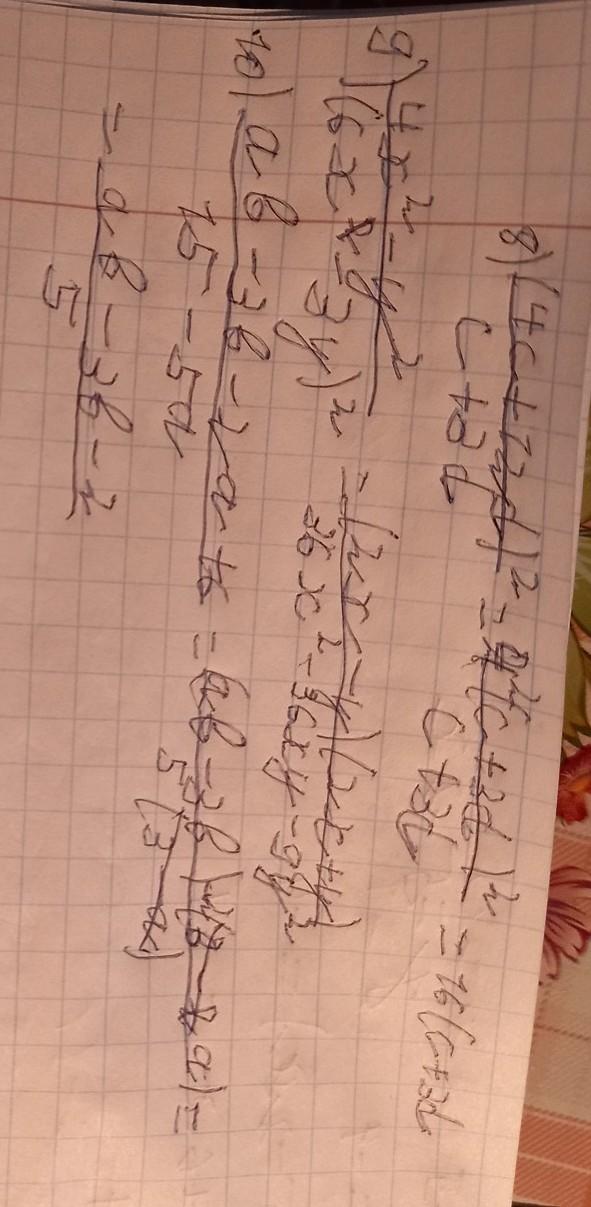 8) (4c+12d)² / c+3d = 4²(c+3d)² / c+3d = 16(c+3d
9) 4x²-y² / (6x-3y)² = (2x-y)(2x+y) / 36x²-36xy-9y²
10) ab-3b-2a+6 / 15-5a = (ab-3b)+(6-2a) / 5(3-a) =
= ab-3b-2 / 5